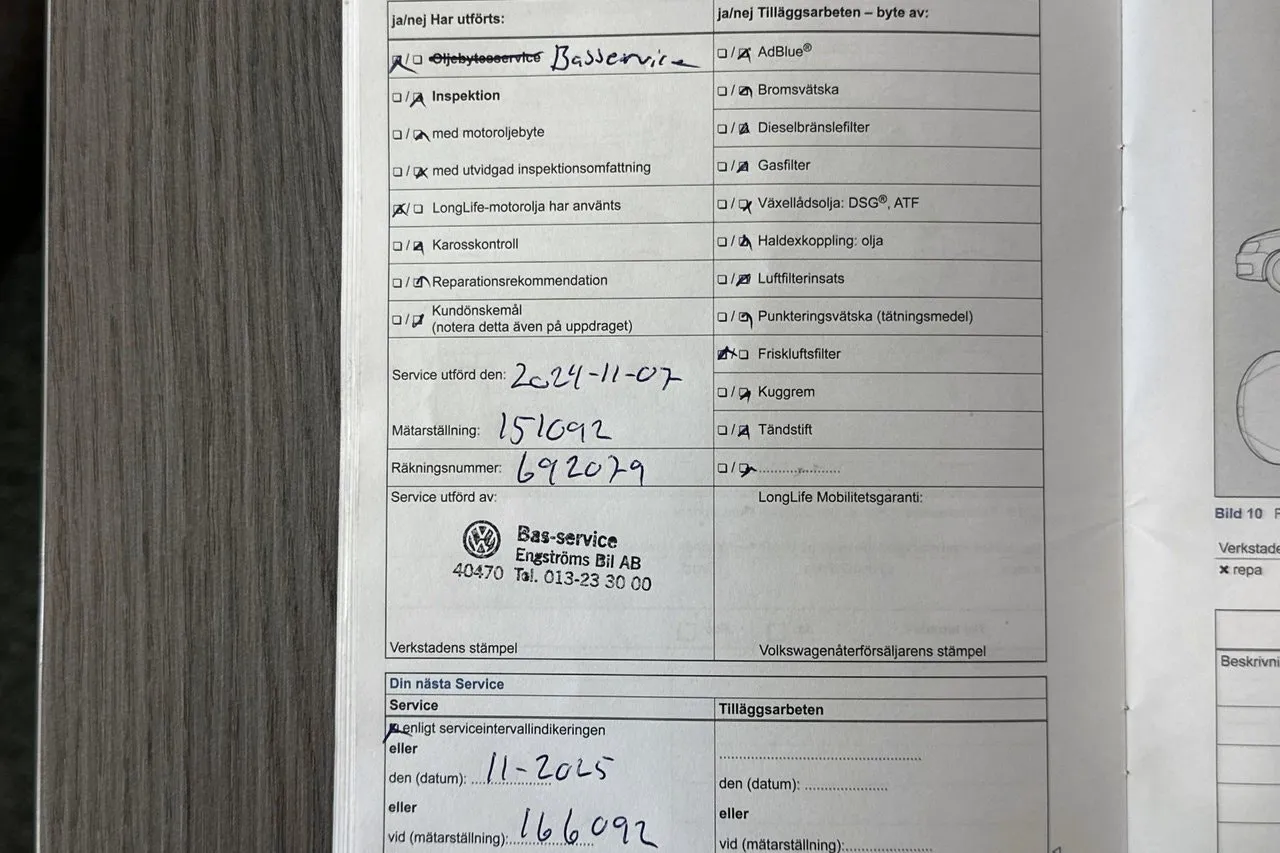 ja/nej Har utförts:
Oljebytesservice Basservice
Inspektion
med motoroljebyte
med utvidgad inspektionsomfattning
LongLife-motorolja har använts
Karosskontroll
Reparationsrekommendation
Kundönskemål
(notera detta även på uppdraget)
Service utförd den: 2024-11-07
Mätarställning: 151092
Räkningsnummer: 692079
Service utförd av:
Bas-service
Engströms Bil AB
40470 Tel. 013-23 30 00
Verkstadens stämpel
ja/nej Tilläggsarbeten – byte av:
AdBlue®
Bromsvätska
Dieselbränslefilter
Gasfilter
Växellådsolja: DSG®, ATF
Haldexkoppling: olja
Luftfilterinsats
Punkteringsvätska (tätningsmedel)
Friskluftsfilter
Kuggrem
Tändstift
LongLife Mobilitetsgaranti:
Volkswagenåterförsäljarens stämpel
Din nästa Service
Service
enligt serviceintervallindikeringen
eller
den (datum): 11-2025
eller
vid (mätarställning): 166092
Tilläggsarbeten
den (datum):
eller
vid (mätarställning):
Bild 10
repa